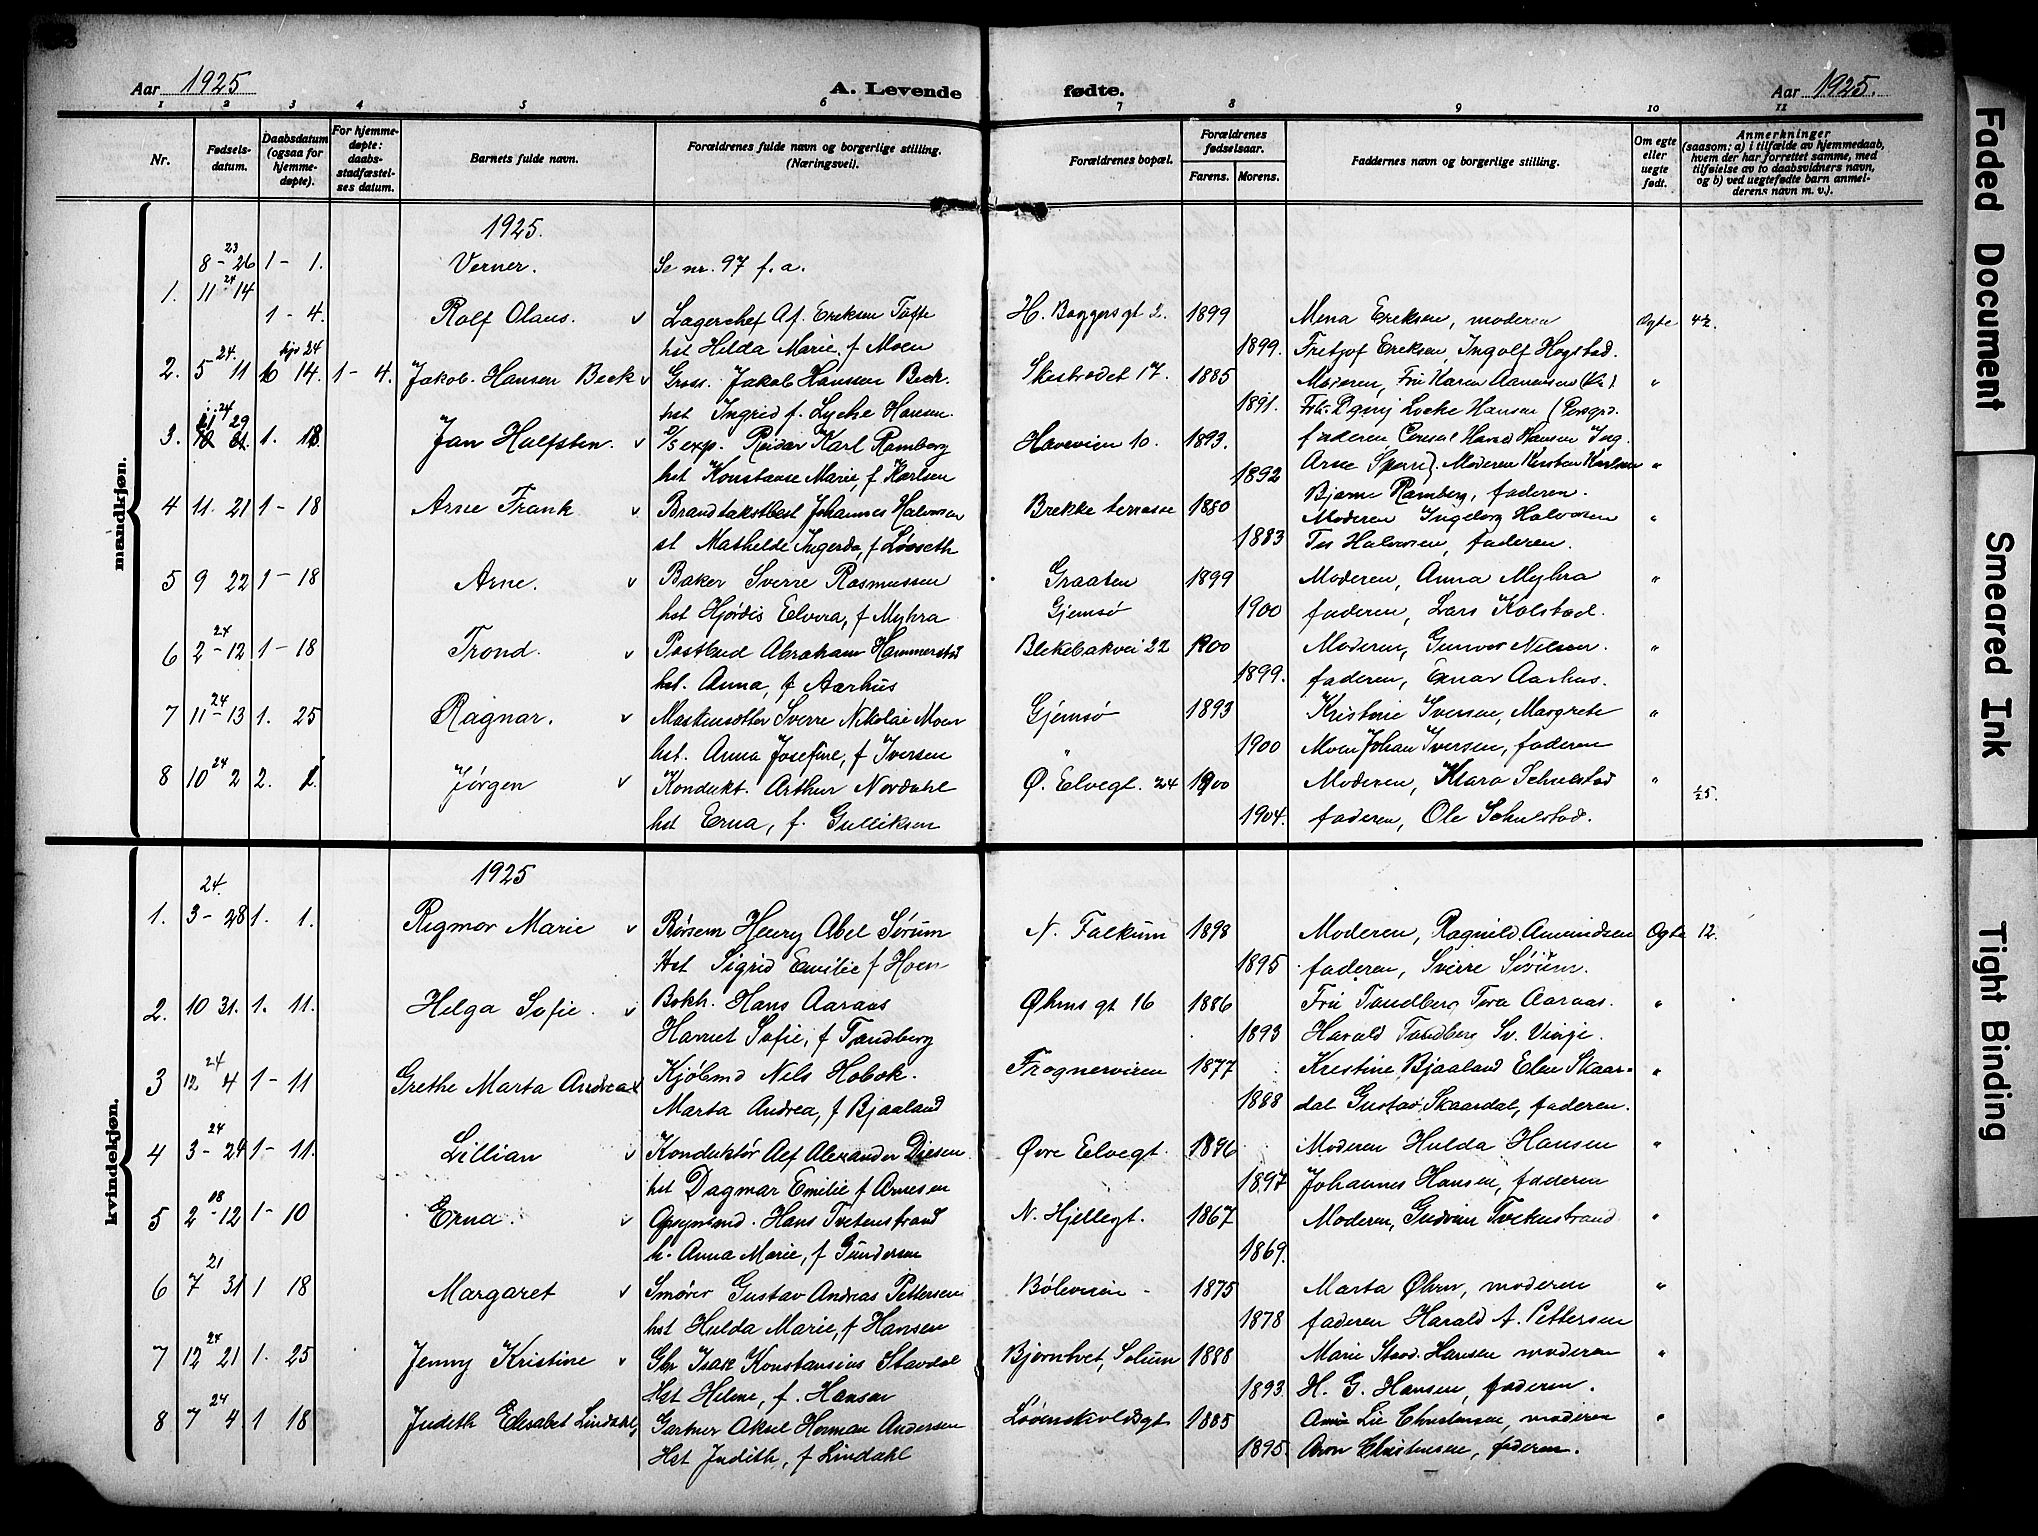 Aar 1925
A. Levende fødte.
Aar 1925.
1 2 3 4 5 6 7 8 9 10 11
Nr.
Fødsels-
datum.
Daabsdatum
(ogsaa for
hjemme-
døpte).
For hjemme-
døpte:
daabs-
stadfæstel-
ses datum.
Barnets fulde navn.
Forældrenes fulde navn og borgerlige stilling.
(Næringsvei).
Forældrenes bopæl.
Forældrenes
fødselsaar.
Farens. Morens.
Faddernes navn og borgerlige stilling.
Om egte
eller
uegte
født.
Anmerkninger
(saasom: a) i tilfælde av hjemmedaab,
hvem der har forrettet samme, med
tilføielse av to daabsvidners navn,
og b) ved uegtefødte barn anmel-
derens navn m. v.).
mandkjøn.
1925.
23
8 - 26 1 - 1. Verner. Se nr. 97 f. a.
1. 11 24 14
1 - 4. Rolf Olaus. v Lagerchef Eriksen H. Baggersgt 2. 1899 Mena Eriksen, moderen Egte 4/2.
hst Hilda Marie, f Moen 1899. Fretjof Eriksen, Ingolf Hogstad.
2. 5 24 11 hjd 24 14. 1 - 4. Jakob Hansen Beck v Gross. Jakob Hansen Beck. 17. 1885 Moderen, Fru Karen Aanensen "
hst Ingrid f. Lyche Hansen. 1891. Locke Hansen
3. 24 29 1. 18. Jan Halfsten. v exp. Reidar Karl Ramberg Haveveien 10. 1893. faderen, Consul Hansen Ing.
hst Konstanse Marie, f Karlsen 1892 Arne Moderen Karlsen "
Bjarne Ramberg, faderen.
4 11. 21 1 - 18 Arne Frank v Johannes Halvorsen Brekke terrasse 1880 Moderen Ingeborg Halvorsen "
st Mathilde Ingerda, f Løvseth 1883 Halvorsen, faderen.
5 9 22 1 - 18 Arne. v Baker Sverre Rasmussen Graaten 1899 Moderen, Anna Myhra "
hst Hjørdis Elvera, f Myhra Gjemsø 1900 faderen, Lars Kolstad.
6 24 2 - 12 1 - 18 Trond. v Postbud Abraham Hammerstad Blekebakvei 22 1900 Moderen, Gunvor Nilsen. "
hst. Anna, f Aarhus 1899. faderen, Einar Aarhus.
7 24 11 - 13 1. 25 Ragnar. v Maskinsetter Sverre Nikolai Moen Gjemsø 1893 Kristine Iversen, Margrete "
hst. Anna Josefine, f Iversen 1900 Moen Johan Iversen, faderen
8 10 24 2 2. 1. Jørgen v Kondukt. Arthur Nordahl Ø. Elvegt. 24 1900 Moderen, Klara Schulstad "
hst Erna, f. Gulliksen 1904. faderen, Ole Schulstad.
kvindekjøn.
1925
24.
1. 3 - 28 1. 1. Rigmor Marie v Børsem Henry Abel Sørum N. Falkum 1898 Moderen, Ragnild Amundsen Egte 12.
Hst Sigrid Emilie f Hoen 1895 faderen, Sverre Sørum.
2. 10 31. 1. 11. Helga Sofie. v Bokh. Hans Aaraas Øhrns gt 16 1886 Fru Tandberg Tora Aaraas. "
Harriet Sofie, f Tandberg 1893 Harald Tandberg Sv. Vinje.
3 24 12 4 1 - 11 Grethe Marta Andrea v Kjøbmd Nils Hobok. Frogneveien 1877 Kristine Bjaaland Elen Skaar- "
Marta Andrea, f Bjaaland 1888 dal Gustav Skaardal, faderen.
4 24 3 - 29 1 - 11. Lillian v Konduktør Alf Alexander Diesen Øvre Elvegt. 1896 Moderen Hulda Hansen "
hst Dagmar Emilie f Arnesen 1897 Johannes Hansen, faderen
5 08 2 - 12 1 - 10 Erna. v Opsynsmd. Hans Tvetenstrand N. Hjellegt. 1867 Moderen, Gudrun Tvetenstrand "
h. Anna Marie, f Gundersen 1869.
6 21 7 31 1 18 Margaret v Gustav Andreas Pettersen Bøleveien - 1875 Marta Øhrn, moderen "
hst Hulda Marie, f Hansen 1878 faderen Harald A. Pettersen
7 24 12 21 1. 25 Jenny Kristine v Gbr Isak Konstansius Stavdal Bjørntvet, Solum 1888 Marie Hansen moderen "
Hst Helene, f. Hansen 1893. H. G. Hansen, faderen.
8 24 7 4. 1 18 Judith Elisabet Lindahl v Gartner Aksel Herman Andersen Løvenskioldsgt 1885 Lie Christensen, moderen "
Hst Judith, f Lindahl 1895. Aron Christensen, faderen.
Faded Document
Smeared Ink
Tight Binding